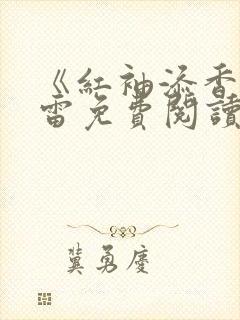 《紅袖添香
雷免費閱讀
冀勇慶